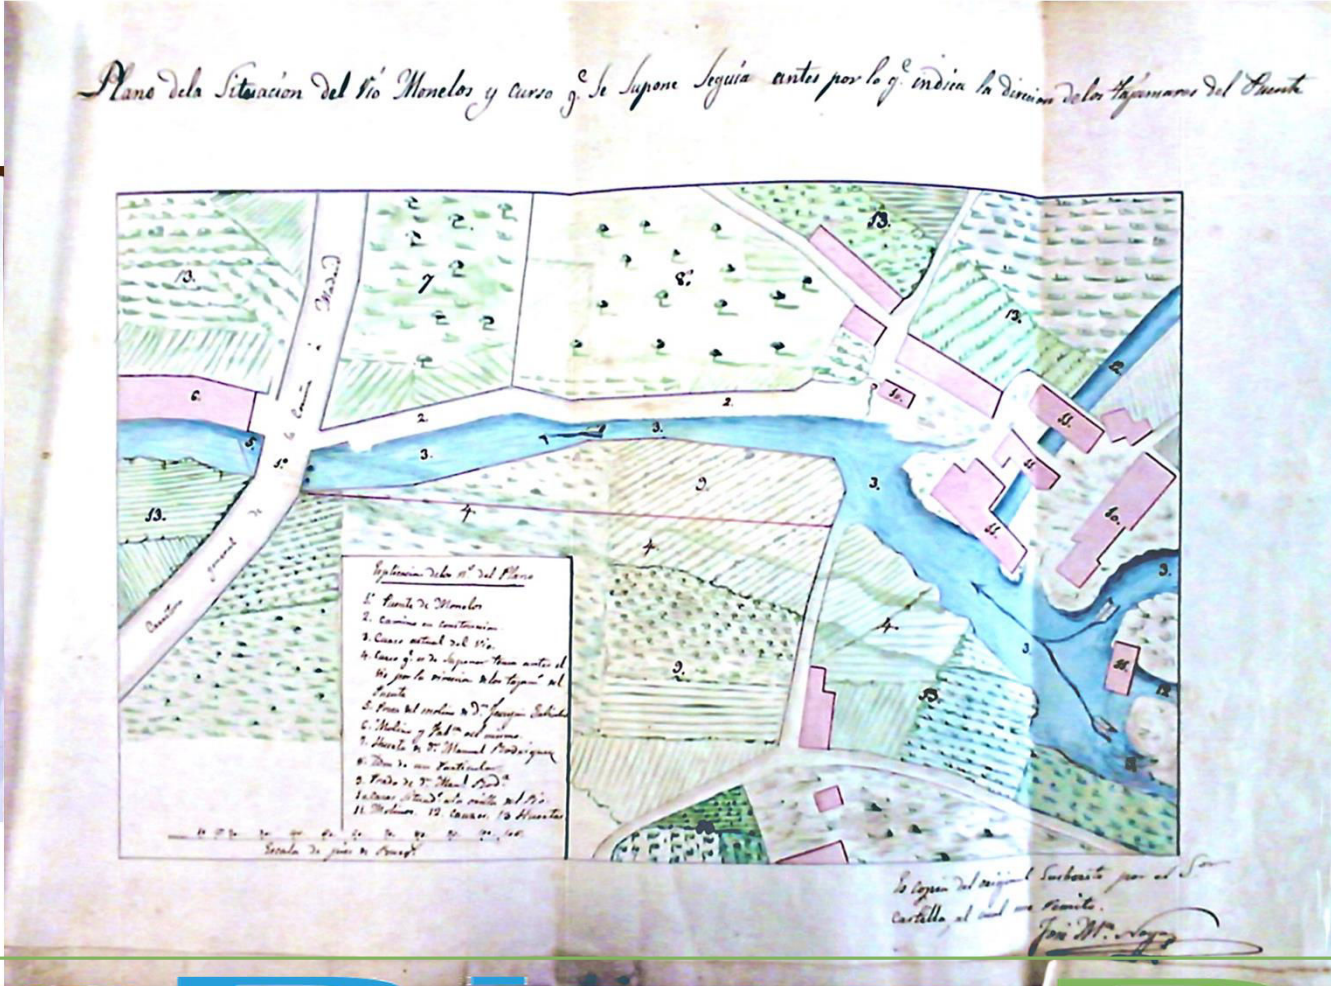 Plano dela Situacion del rio Monelos y curso q.e Se Supone Seguia antes por lo q.e indica la direcion delos tajamares del Puente
13.
7
8.
13.
13.
12.
Carretera general de la Coruña á Madrid
6.
5.
1.º
2.
2.
10.
11.
3.
3.
3.
11.
10.
11.
13.
4.
9.
4.
4.
9.
3.
3.
11.
12.
13.
Esplicacion delos n.s del Plano
1.º Puente de Monelos
2. Camino en construccion
3. Curso actual del rio.
4. Curso q.e es de Suponer antes el
rio por la direccion delos tajam.s del
Puente
5. Presa del molino de D.n Joaquin
6. Molino y Fab.ca del mismo.
7. Huerta de D.n Manuel Rodriguez
8. Idem de un Particular
9. Prado de D.n Man.l Rod.z
10. Casas situad.s ala orilla del Rio.
11. Molinos. 12. Cauces. 13 Huertas
Escala de pies de Burg.s
Es copia del original Suscrito por el Sor
Castilla, al cual me remito.
José M.a